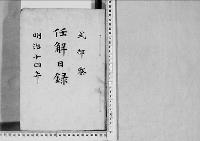 式部寮
任解日録
明治十四年